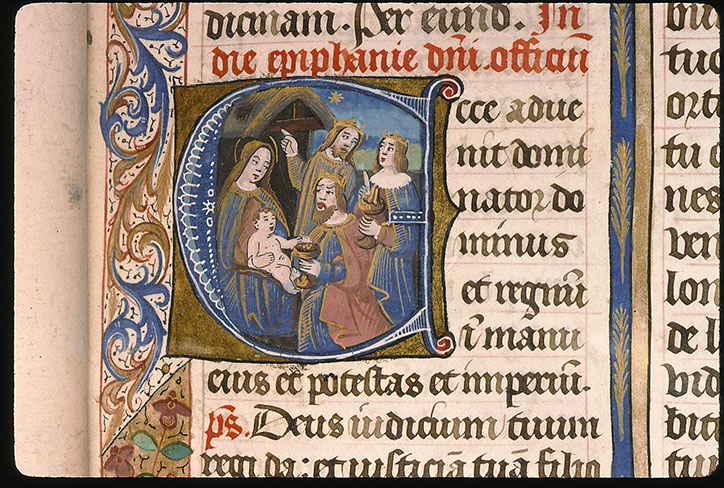 dicinam. Per eund. In
die epiphanie dn̄i. officiū
Ecce adue
nit domi
nator do
minus
et regnū
ī manu
eius et potestas et imperiū.
ps. Deus iudicium tuum
regi da: et iusticiā tuā filio
bu
tuo
ort
tu e
nes
ven
lon
de l
vid
bit
tu